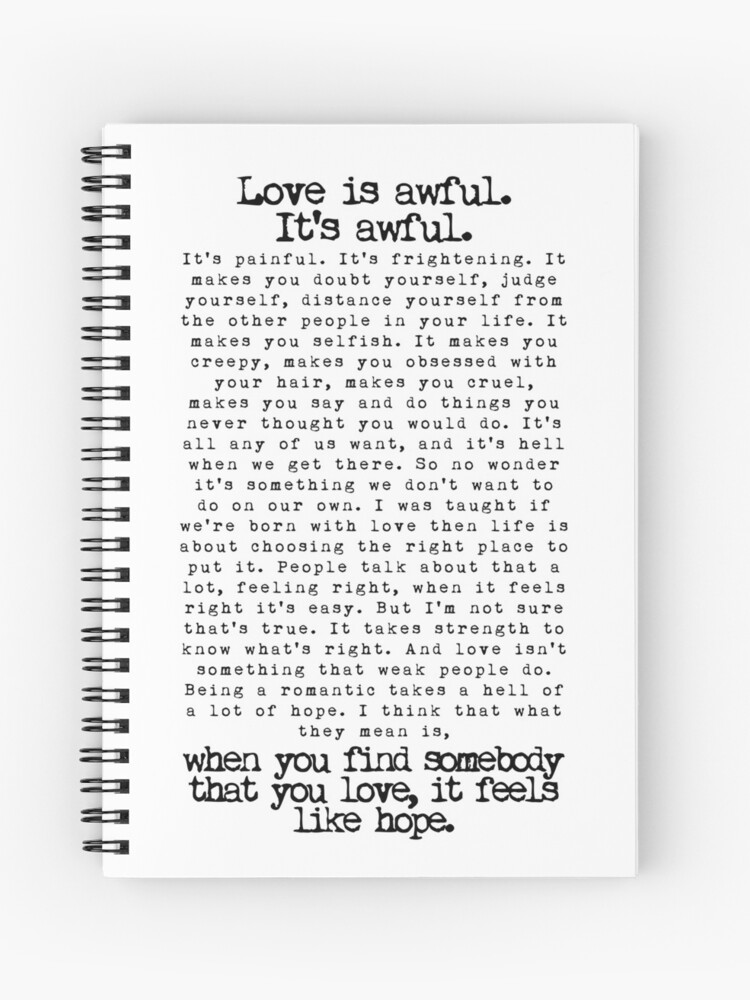 Love is awful.
It's awful.
It's painful. It's frightening. It
makes you doubt yourself, judge
yourself, distance yourself from
the other people in your life. It
makes you selfish. It makes you
creepy, makes you obsessed with
your hair, makes you cruel,
makes you say and do things you
never thought you would do. It's
all any of us want, and it's hell
when we get there. So no wonder
it's something we don't want to
do on our own. I was taught if
we're born with love then life is
about choosing the right place to
put it. People talk about that a
lot, feeling right, when it feels
right it's easy. But I'm not sure
that's true. It takes strength to
know what's right. And love isn't
something that weak people do.
Being a romantic takes a hell of
a lot of hope. I think that what
they mean is,
when you find somebody
that you love, it feels
like hope.